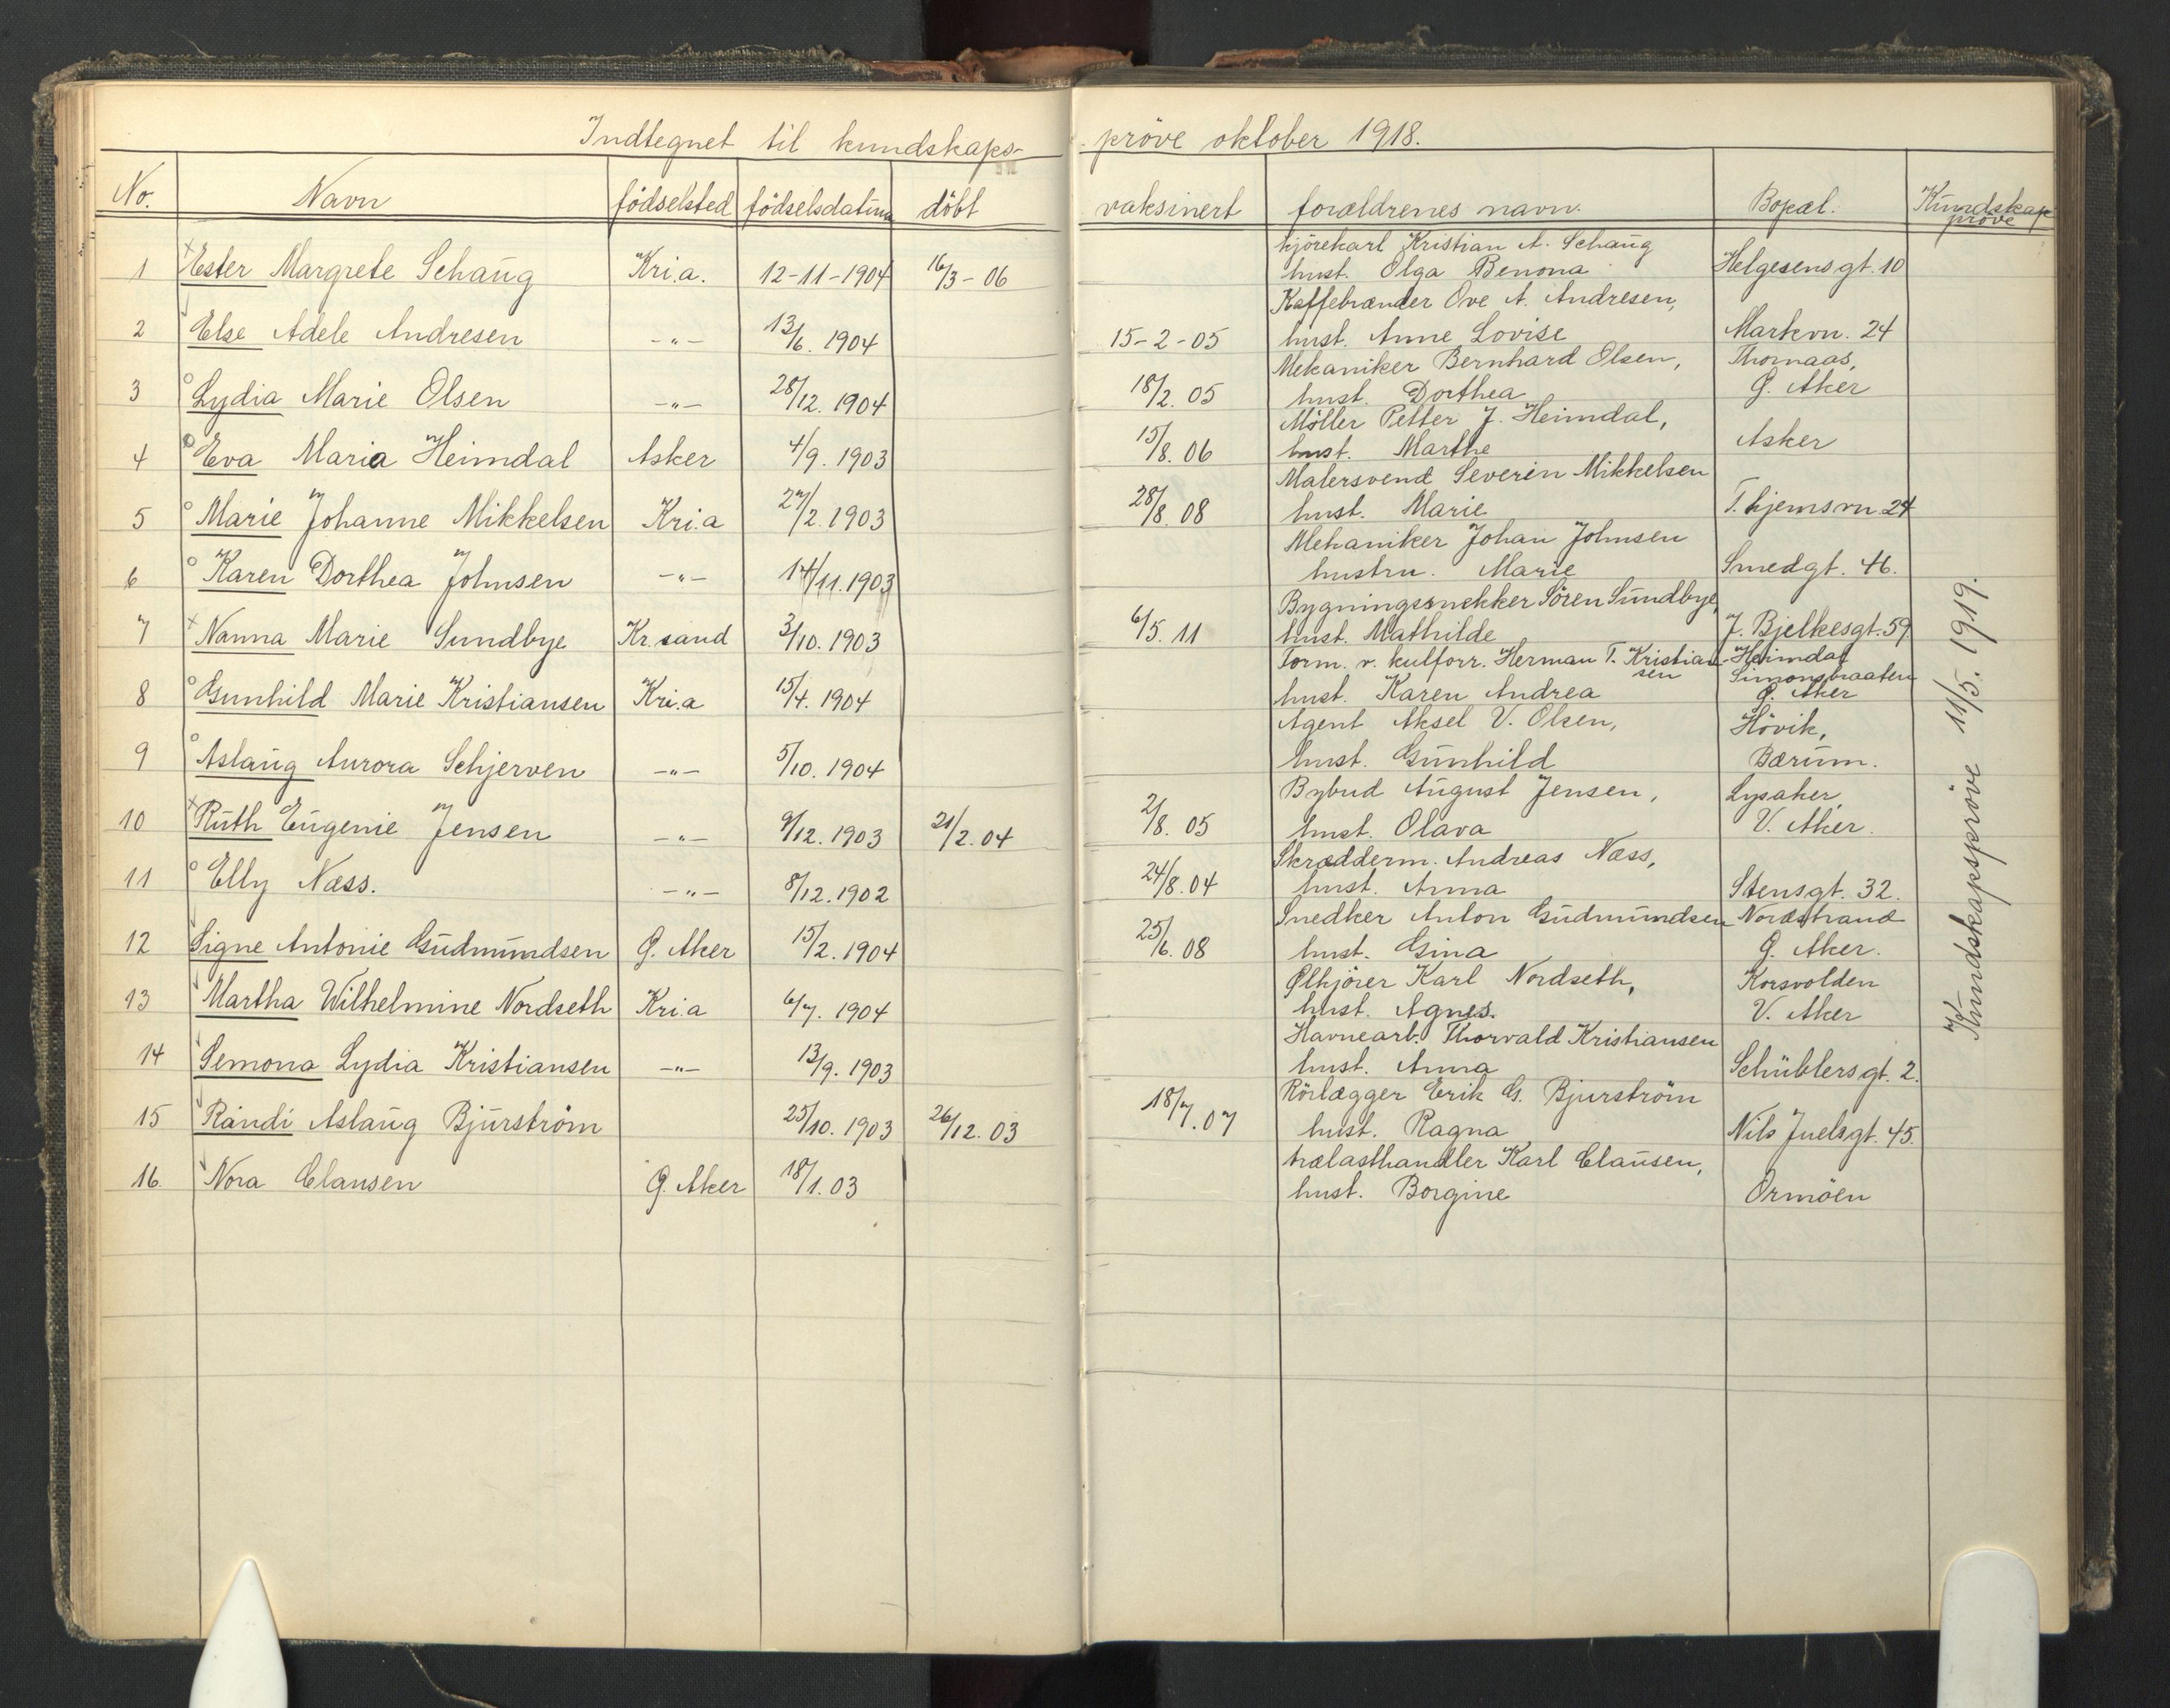 Indtegnet til kundskaps- pröve oktober 1918.
No. Navn födselsted födselsdatum döbt vaksinert forældrenes navn. Bopæl. Kundskap pröve
kjörekarl Kristian A. Schaug
1 Ester Margrete Schaug Kri.a. 12-11-1904 16/3-06 hust. Olga Benona Helgesensgt. 10
Kaffebrænder Ove A. Andresen,
2 Else Adele Andresen -"- 13/6. 1904 15-2-05 hust. Anne Lovise Markvn. 24
Mekaniker Bernhard Olsen, Thomaas,
3 Lydia Marie Olsen -"- 28/12. 1904 18/2. 05 hust. Dorthea Ö. Aker
Möller Petter J. Heimdal,
4 Eva Maria Heimdal Asker 4/9. 1903 15/8. 06 hust. Marthe Asker
Malersvend Severin Mikkelsen
5 Marie Johanne Mikkelsen Kri.a 27/2. 1903 28/8. 08 hust. Marie T.hjemsvn. 24
Mekaniker Johan Johnsen
6 Karen Dorthea Johnsen -"- 14/11. 1903 hustru. Marie Smedgt. 46.
Bygningssnekker Sören Sundbye,
7 Nanna Marie Sundbye Kr.sand 3/10. 1903 6/5. 11 hust. Mathilde J. Bjelkesgt. 59
Form. v. kulforr. Herman T. Kristian- Heimdal
sen Simonsbraaten
8 Gunhild Marie Kristiansen Kri.a 15/4. 1904 hust. Karen Andrea Ö. Aker
Agent Aksel V. Olsen, Hövik,
9 Aslaug Aurora Schjerven -"- 5/10. 1904 hust. Gunhild Bærum.
Bybud August Jensen, Lysaker,
10 Ruth Eugenie Jensen -"- 9/12. 1903 21/2. 04 2/8. 05 hust. Olava V. Aker.
Skrædderm. Andreas Næss,
11 Elly Næss. -"- 8/12. 1902 24/8. 04 hust. Anna Stensgt. 32.
Snedker Anton Gudmundsen Nordstrand
12 Signe Antonie Gudmundsen Ö. Aker 15/2. 1904 25/6. 08 hust. Gina Ö. Aker.
Ölkjörer Karl Nordseth, Korsvolden
13 Martha Wilhelmine Nordseth Kri.a 6/7. 1904 hust. Agnes. V. Aker
Havnearb. Thorvald Kristiansen
14 Semona Lydia Kristiansen -"- 13/9. 1903 hust. Anna Schüblersgt. 2.
Rörlægger Erik G. Bjurström
15 Randi Aslaug Bjurström 25/10. 1903 26/12. 03 18/7. 07 hust. Ragna Nils Juelsgt. 45.
trælasthandler Karl Clausen,
16. Nora Clausen Ö. Aker 18/1. 03 hust. Borgine Ormöen
Kundskapspröve 11/5. 1919.